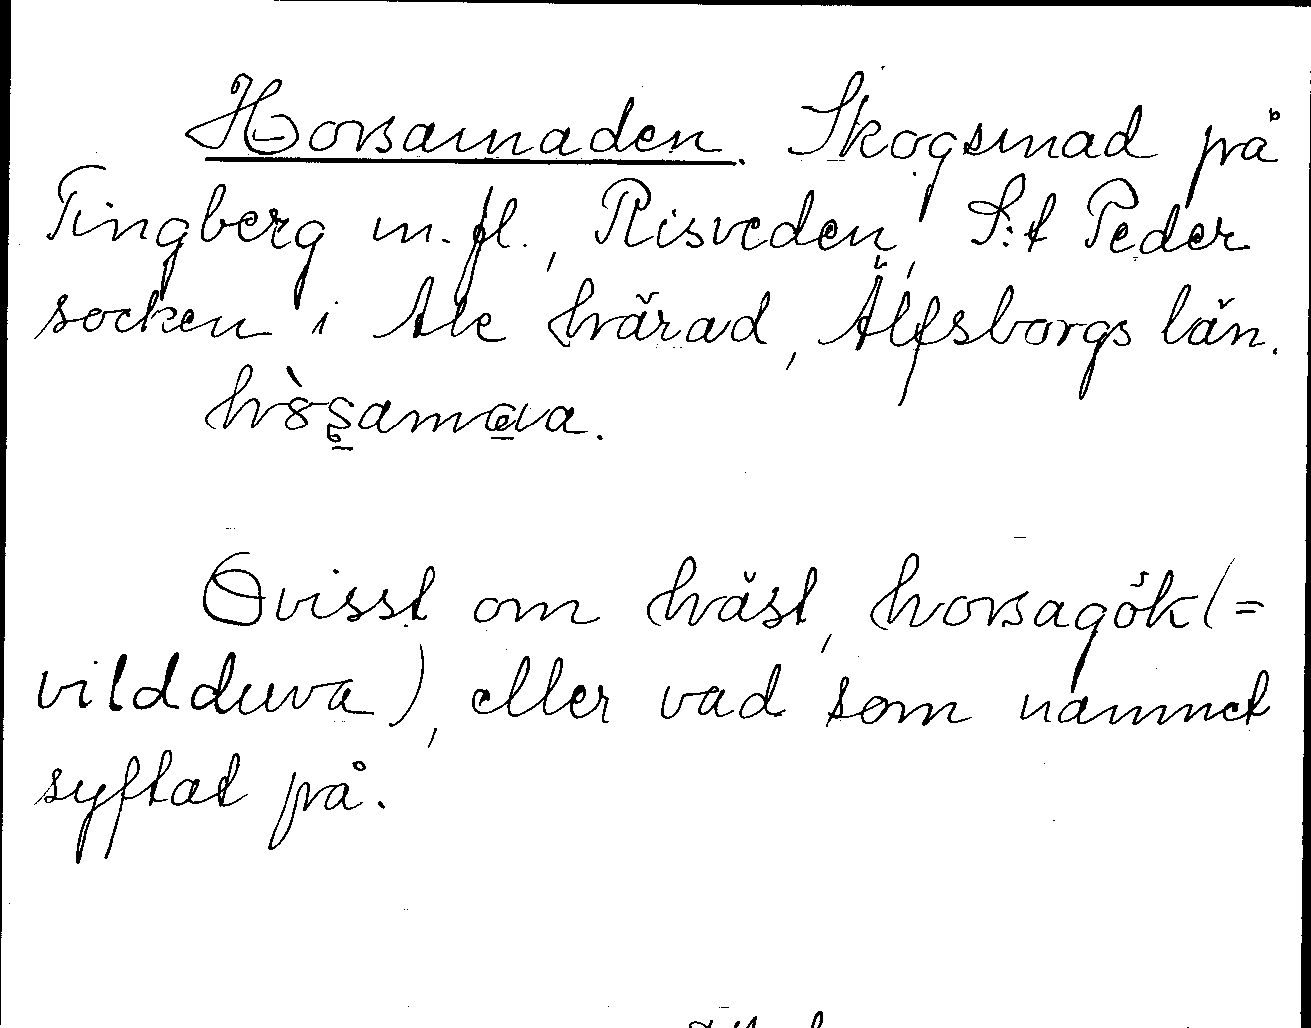 Horsamaden. Skogsmad på
Tingberg m.fl., Risveden, S:t Peder
socken i Ale härad, Älfsborgs län.
Ovisst om häst, horsagök (=
vildduva), eller vad som namnet
syftat på.